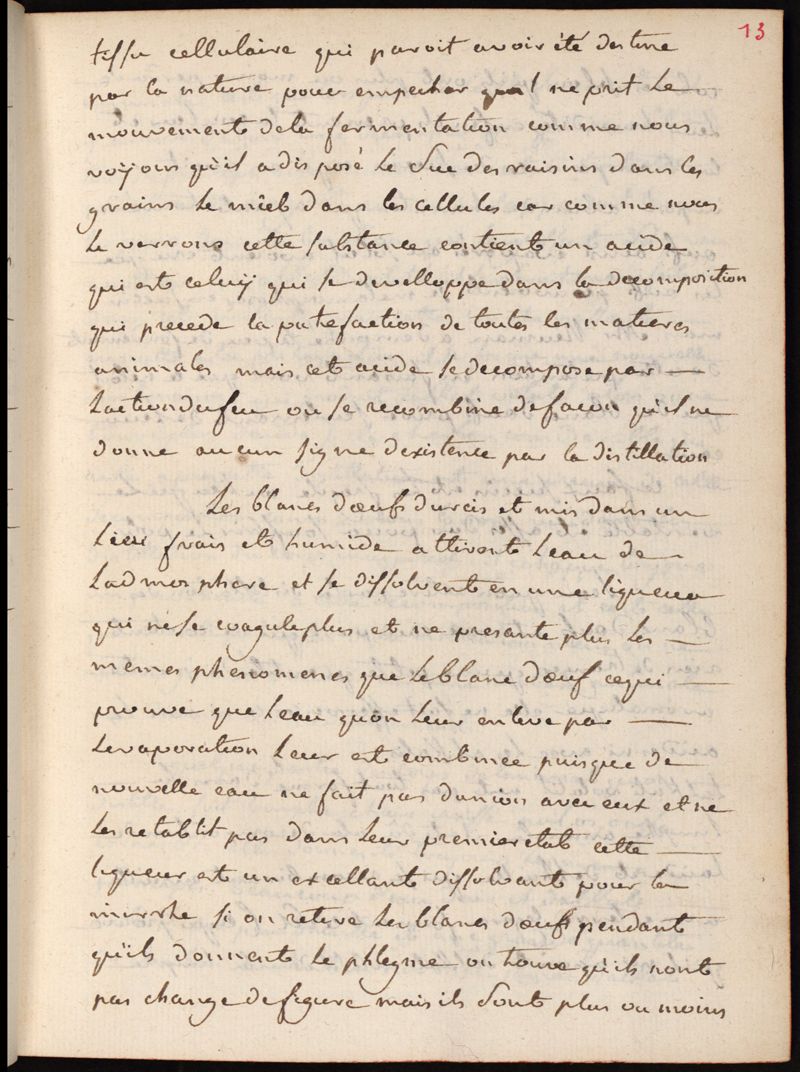 13
tissu cellulaire qui paroit avoir été destine
par la nature pour empecher quil ne prit le
mouvement dela fermentation comme nous
voijons qu'il a disposé le suc des raisins dans les
grains le miel dans les cellules car comme nous
le verrons cette substance contient un acide
qui est celuij qui se developpe dans la decomposition
qui precede la putefaction de toutes les matieres
animales mais cet acide se decompose par
laction du feu ou se recombine defacon qu'il ne
donne aucun signe dexistence par la distillation
Les blancs dœufs durcis et mis dans un
lieu frais et humide attirent leau de
ladmosphere et se dissolvent en une liqueur
qui ne se coagule plus et ne presante plus les
memes phenomenes que le blanc dœuf cequi
prouve que leau quon leur enleve par
levaporation leur est combinee puisque de
nouvelle eau ne fait pas dunion avec eux et ne
les retablit pas dans leur premier etat cette
liqueur est un excellant dissolvant pour la
mirrhe si on retire les blancs dœufs pendant
qu'ils donnent le phlegme on trouve qu'ils nont
pas change de figure mais ils sont plus ou moins